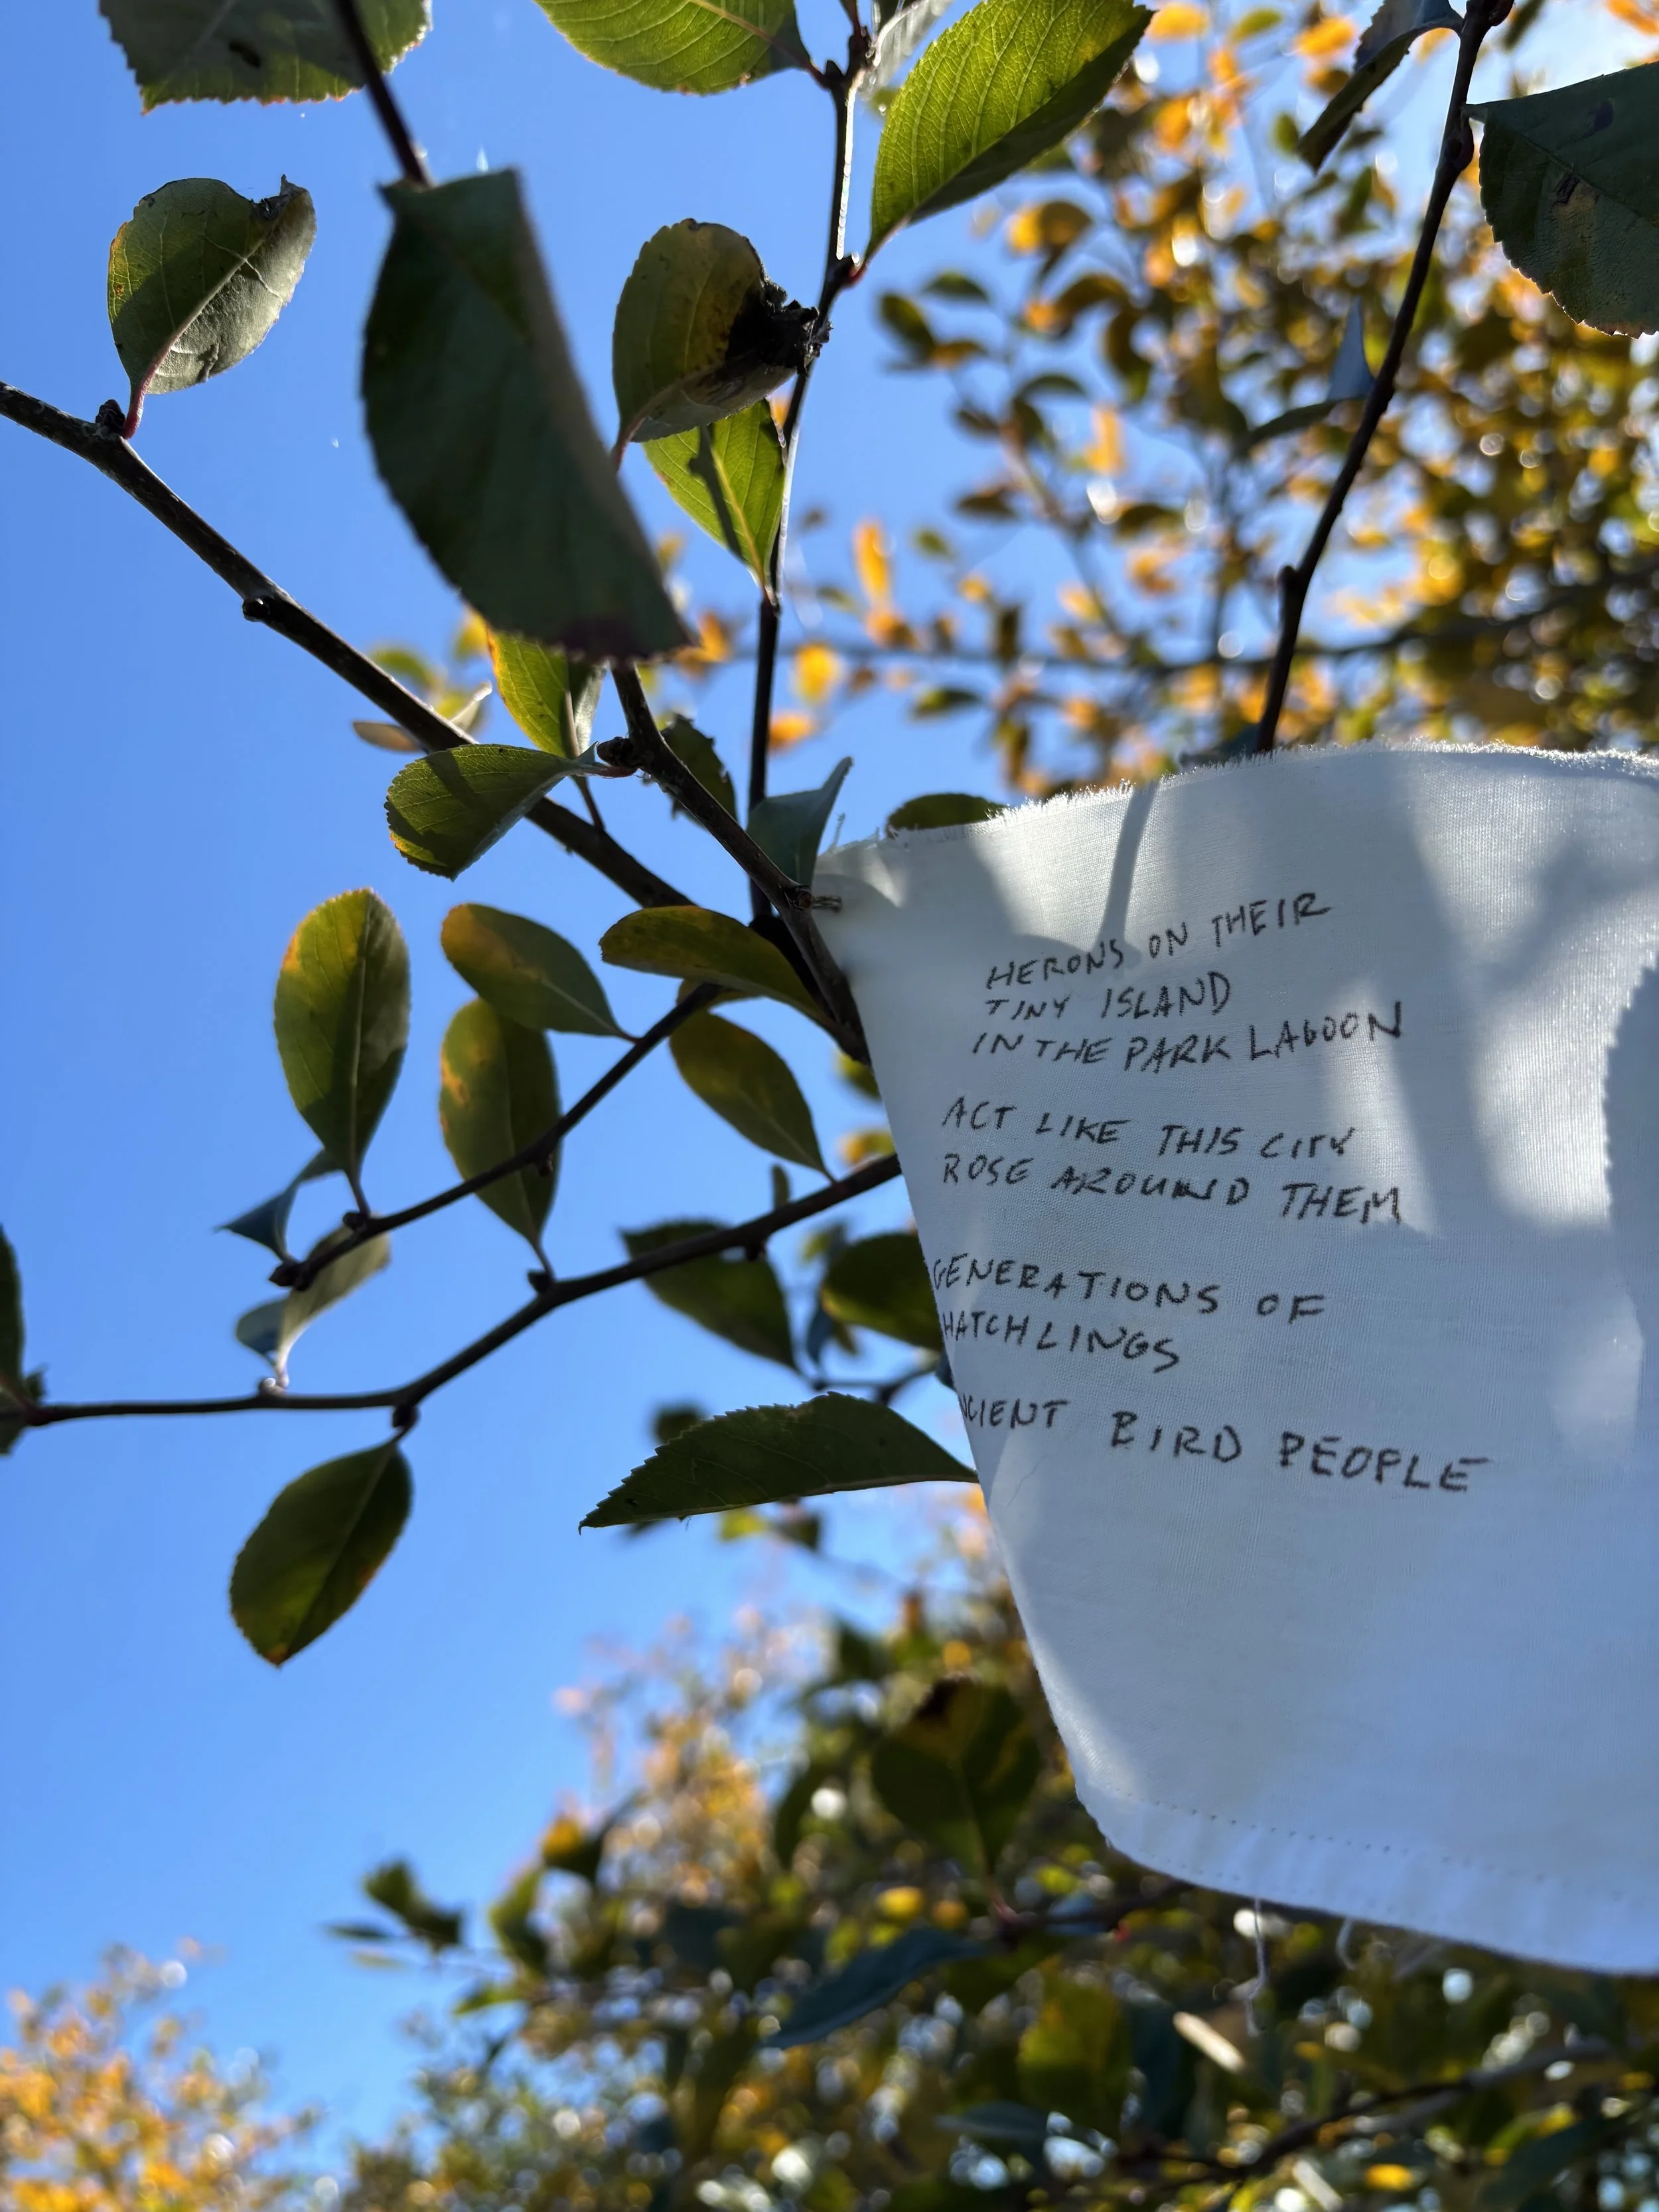 HERONS ON THEIR
TINY ISLAND
IN THE PARK LAGOON
ACT LIKE THIS CITY
ROSE AROUND THEM
GENERATIONS OF
HATCHLINGS
NCIENT BIRD PEOPLE